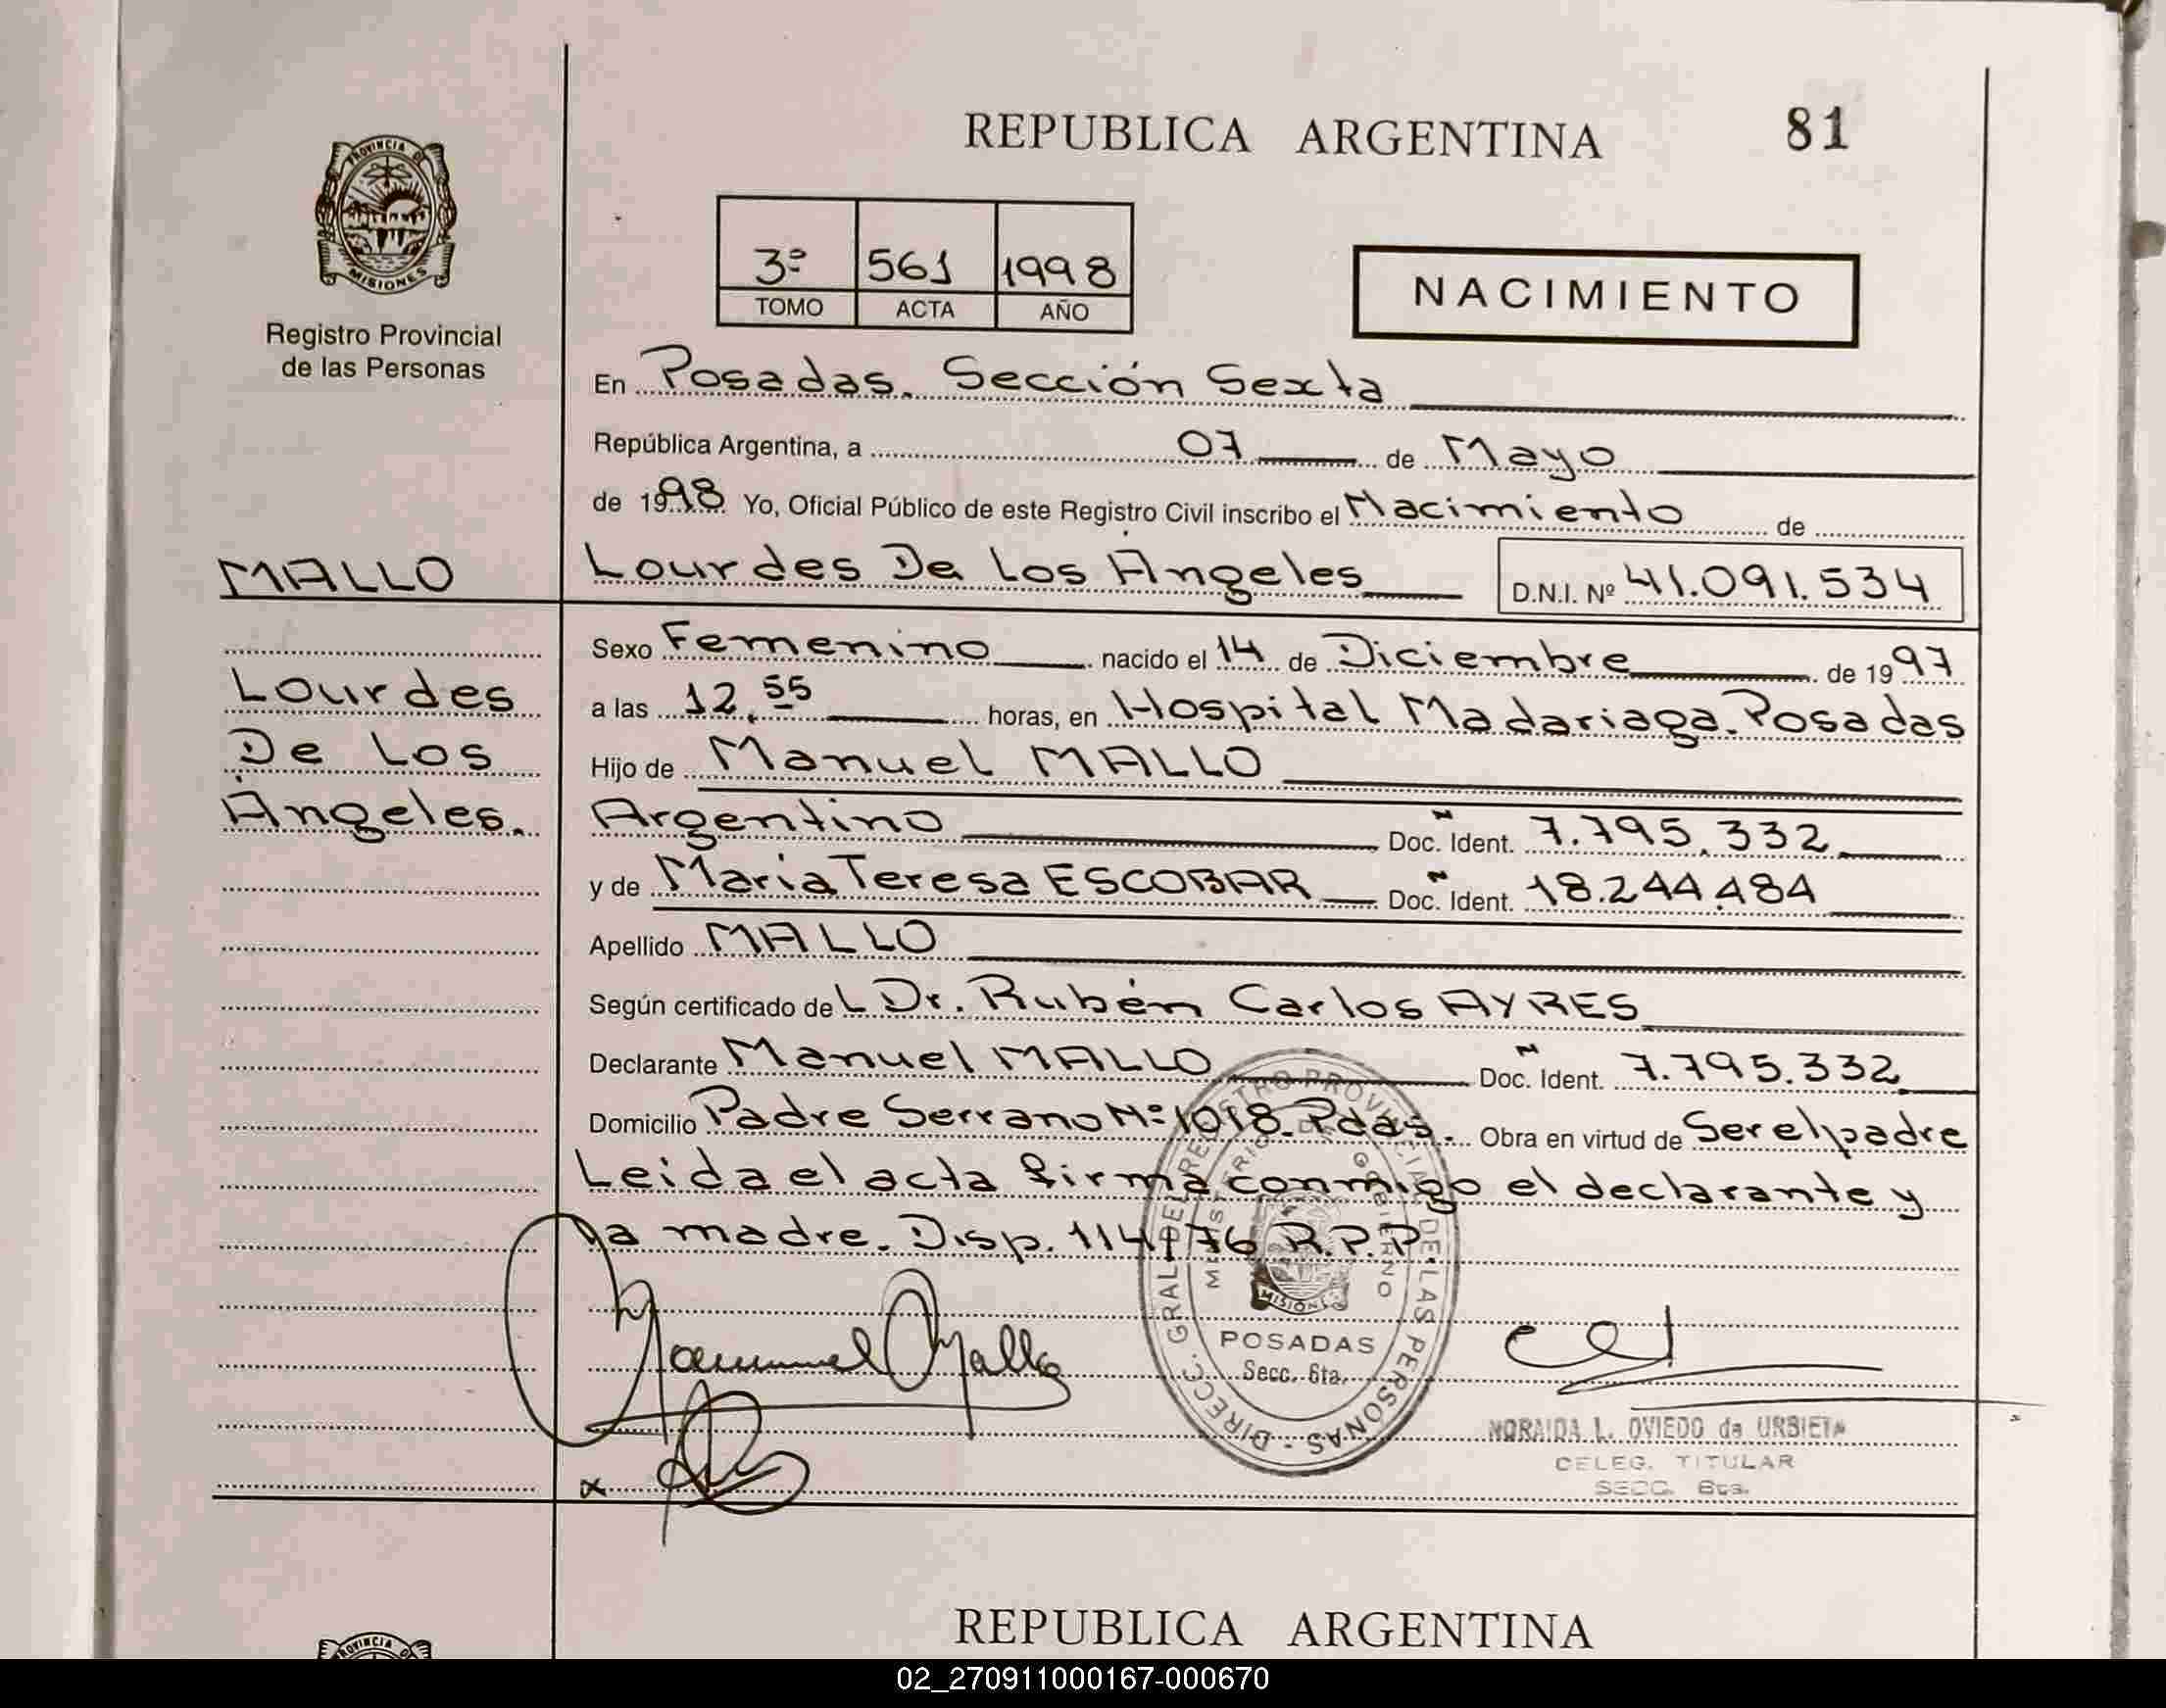 REPUBLICA ARGENTINA 81
PROVINCIA DE
MISIONES
Registro Provincial
de las Personas
3º 561 1998
TOMO ACTA AÑO
NACIMIENTO
En Posadas. Sección Sexta
República Argentina, a 07 de Mayo
de 1998 Yo, Oficial Público de este Registro Civil inscribo el Nacimiento de
MALLO
Lourdes De Los Angeles D.N.I. Nº 41.091.534
Sexo Femenino nacido el 14 de Diciembre de 1997
Lourdes
De Los
Angeles.
a las 12,55 horas, en Hospital Madariaga. Posadas
Hijo de Manuel MALLO
Argentino Doc. Ident. 7.795.332
y de Maria Teresa ESCOBAR Doc. Ident. 18.244.484
Apellido MALLO
Según certificado del Dr. Rubén Carlos AYRES
Declarante Manuel MALLO Doc. Ident. 7.795.332
Domicilio Padre Serrano Nº 1018. Pdas. Obra en virtud de Ser el padre
Leida el acta firma conmigo el declarante y
la madre. Disp. 114/76 R.P.P.
Manuel Mallo
DIRECC. GRAL. DEL REGISTRO PROVINCIAL DE LAS PERSONAS
MINISTERIO DE GOBIERNO
MISIONES
POSADAS
Secc. 6ta.
x
NORAIDA L. OVIEDO de URBIETA
DELEG. TITULAR
SECC. 6ta.
REPUBLICA ARGENTINA
PROVINCIA
02_270911000167-000670